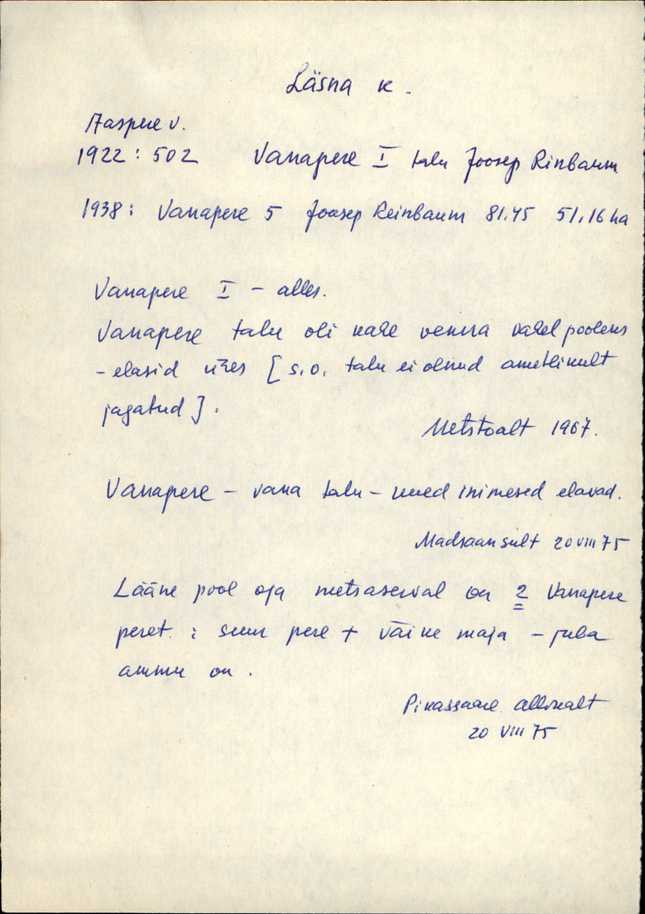 Läsna k.
Aaspere v.
1922: 502 Vanapere I talu Joosep Rinbaum
1938: Vanapere 5 Joosep Reinbaum 81.45 51,16 ha
Vanapere I - alles.
Vanapere talu oli kahe venna vahel pooleks
- elasid ühes [s.o. talu ei olnud ametlikult
jagatud].
Metstoalt 1967.
Vanapere - vana talu - uued inimesed elavad.
Madsaansult 20 VIII 75
Lääne pool oja metsaserval on 2 Vanapere
peret: suur pere + väike maja - juba
ammu on.
Pikassaare allikalt
20 VIII 75